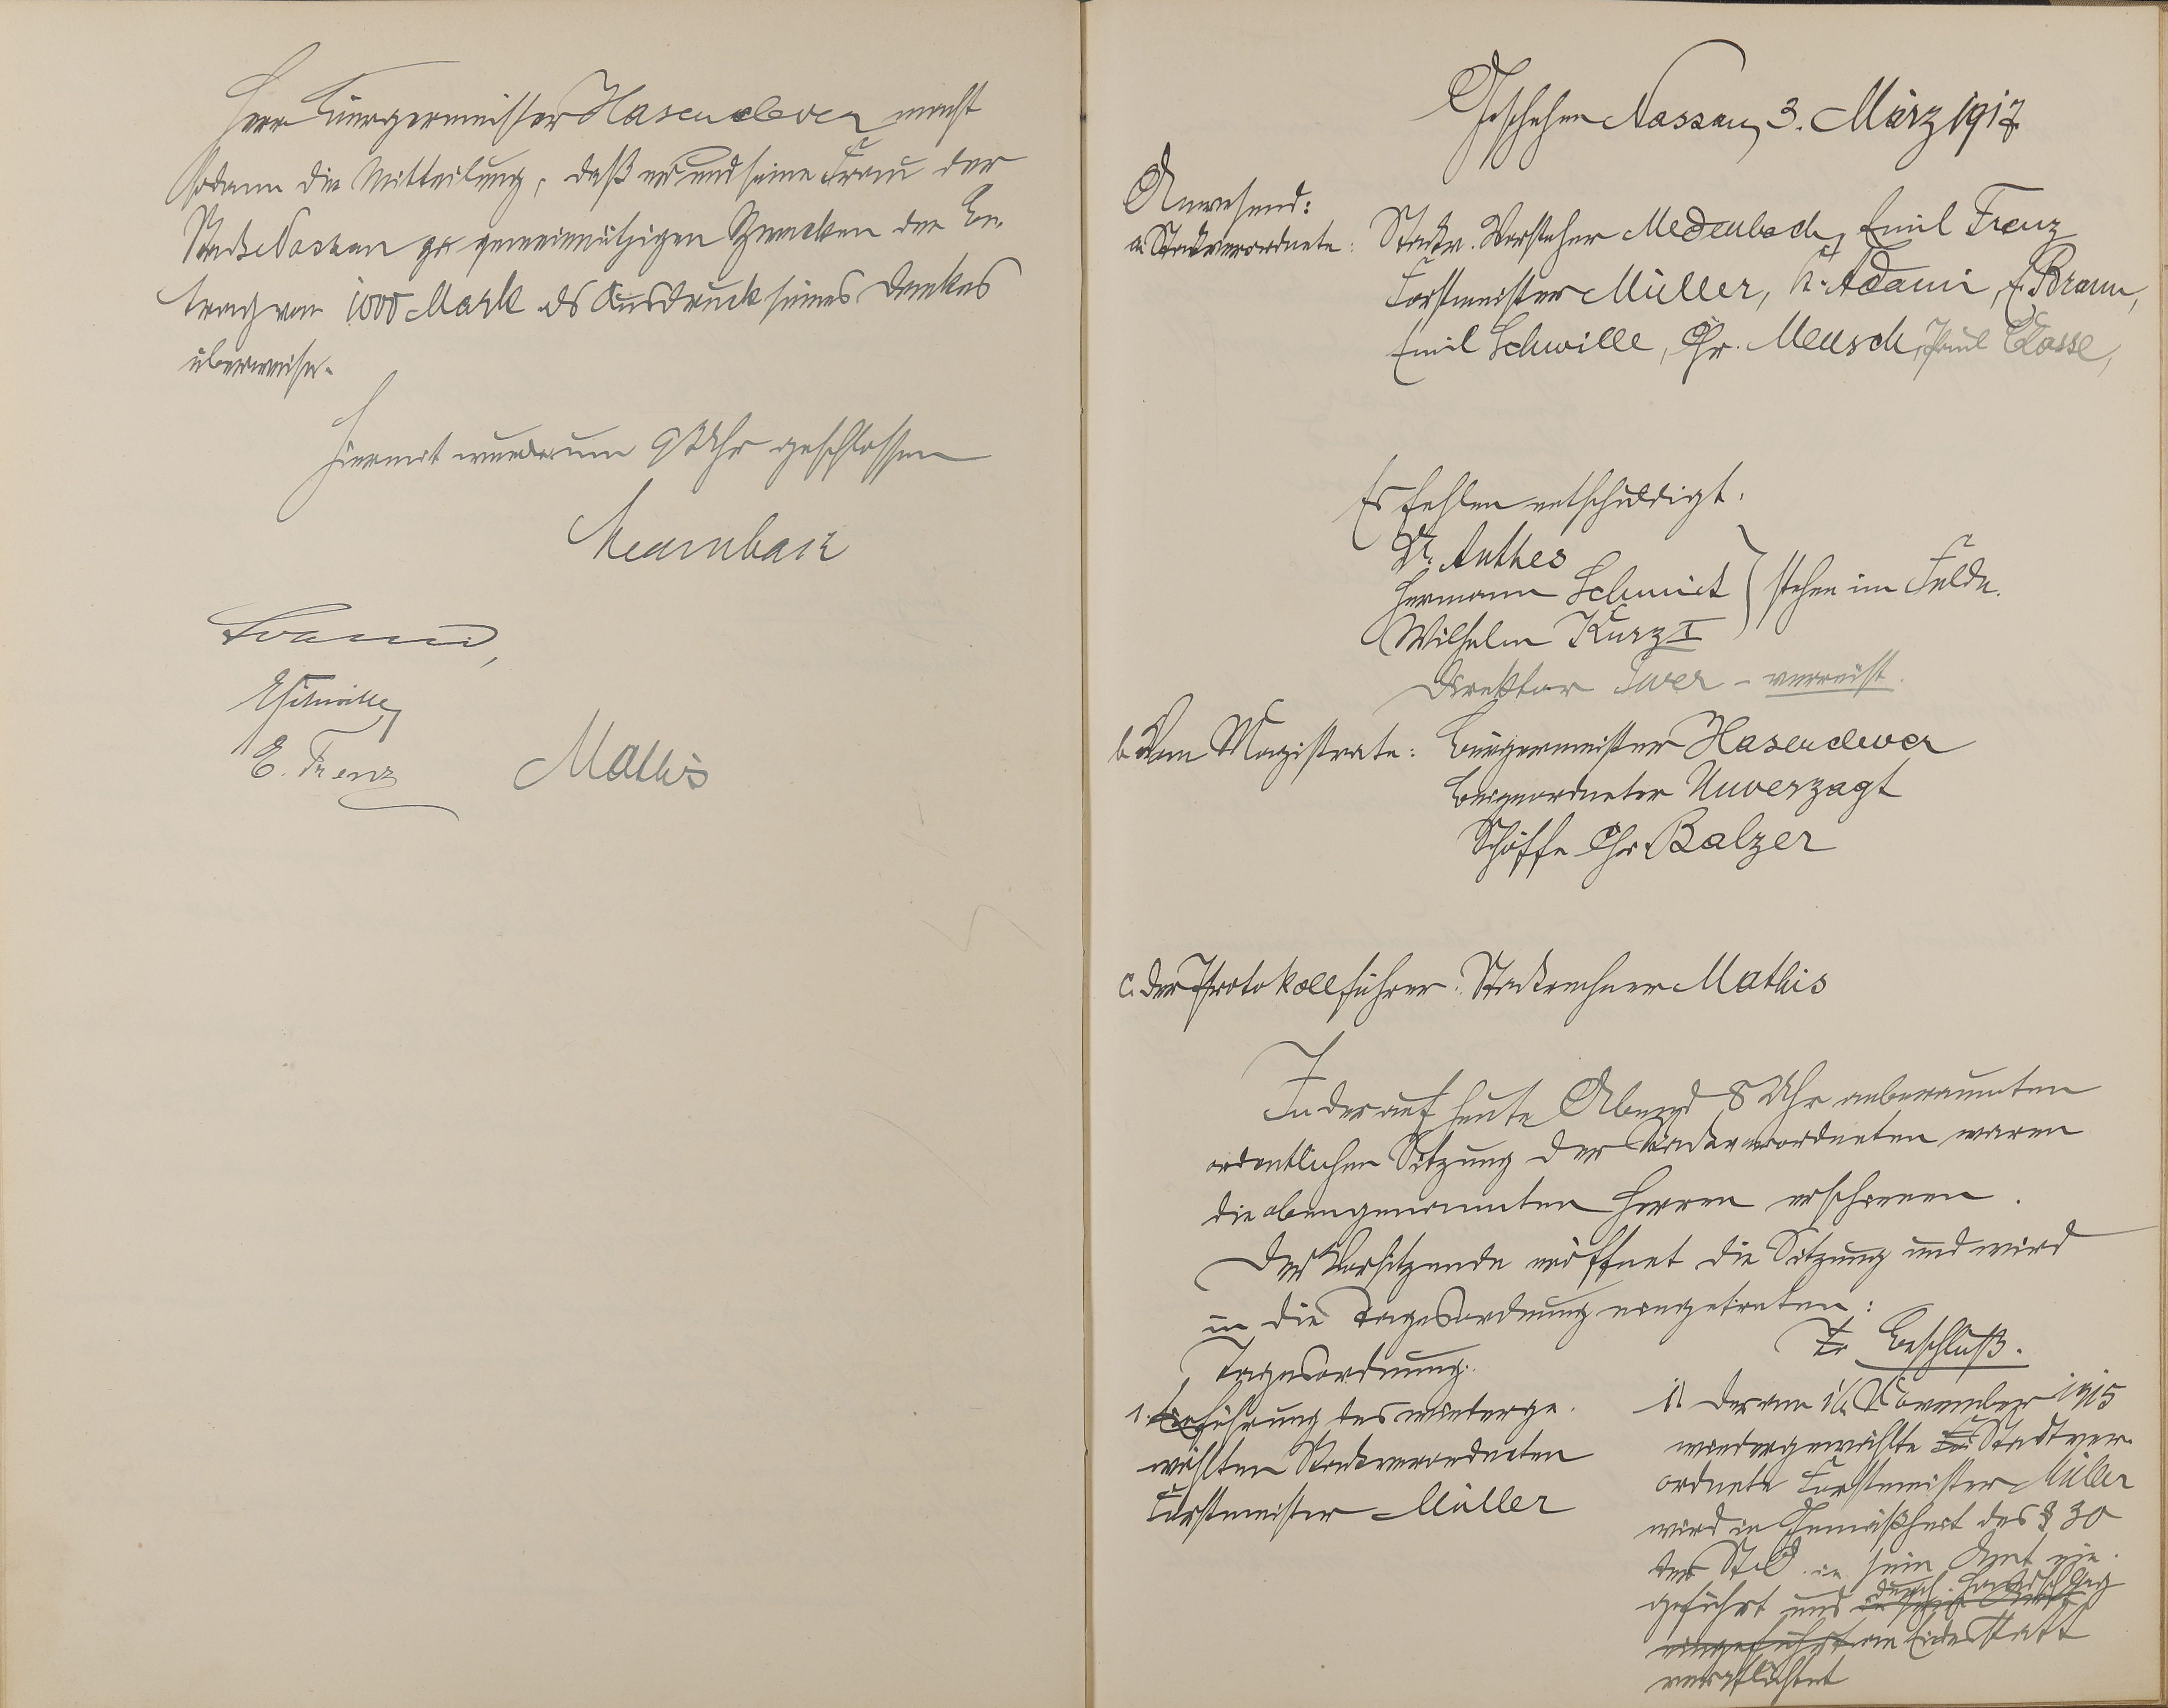 Herr Bürgermeister Hasenclever macht
sodann die Mitteilung, daß er und seine Frau der
Stadt Nassau zu gemeinnützigen Zwecken den Be-
trag von 1000 Mark als Ausdruck seines Dankes
überweise.
Hiermit wurde um 9 Uhr geschlossen
Medenbach
Adami,
ESchwille
E. Frenz
Mathis
Geschehen Nassau, 3. März 1917
Anwesend:
a. Stadtverordnete: Stadtv. Vorsteher Medenbach, Emil Frenz
Forstmeister Müller, K. Adami, E. Braun,
Emil Schwille, Chr. Meusch, Paul Classe,
Es fehlen entschuldigt.
Dr. Anthes
Hermann Schmidt } stehen im Felde.
Wilhelm Kurz I
Direktor Iwer – verreist.
b. Vom Magistrate: Bürgermeister Hasenclever
Beigeordneter Unverzagt
Schöffe Chr. Balzer
c. der Protokollführer: Stadtrechner Mathis
In der auf heute Abend 8 Uhr anberaumten
ordentlichen Sitzung der Stadtverordneten waren
die obengenannten Herren erschienen.
Der Vorsitzende eröffnet die Sitzung und wird
in die Tagesordnung eingetreten:
Tagesordnung:
1. Einführung des wiederge-
wählten Stadtverordneten
Forstmeister Müller
Beschluß.
1) Der am 16. November 1915
wiedergewählte Stadtver-
ordnete Forstmeister Müller
wird in Gemäßheit des § 30
der St.O. in sein Amt ein-
geführt und durch Handschlag
in sein Amt
eingeführt an Eidesstatt
verpflichtet